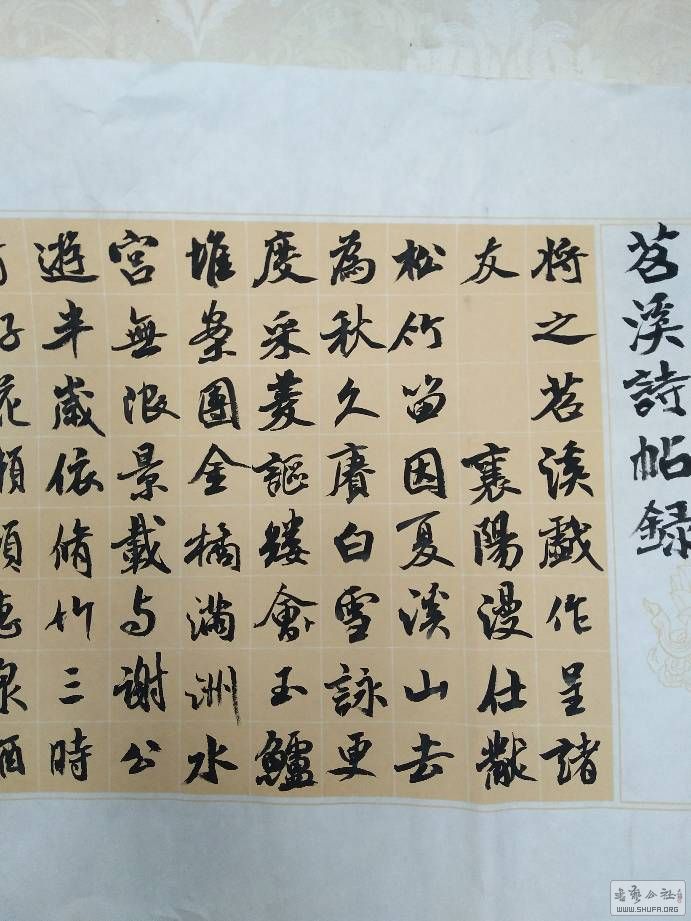 苕溪詩帖録
将之苕溪戲作呈諸
友 襄陽漫仕黻
松竹留因夏溪山去
為秋久賡白雪詠更
度采菱謳縷會玉鱸
堆案團金橘滿洲水
宮無限景載与謝公
遊半歲依脩竹三時
花泉酒
WWW.SHUFA.ORG